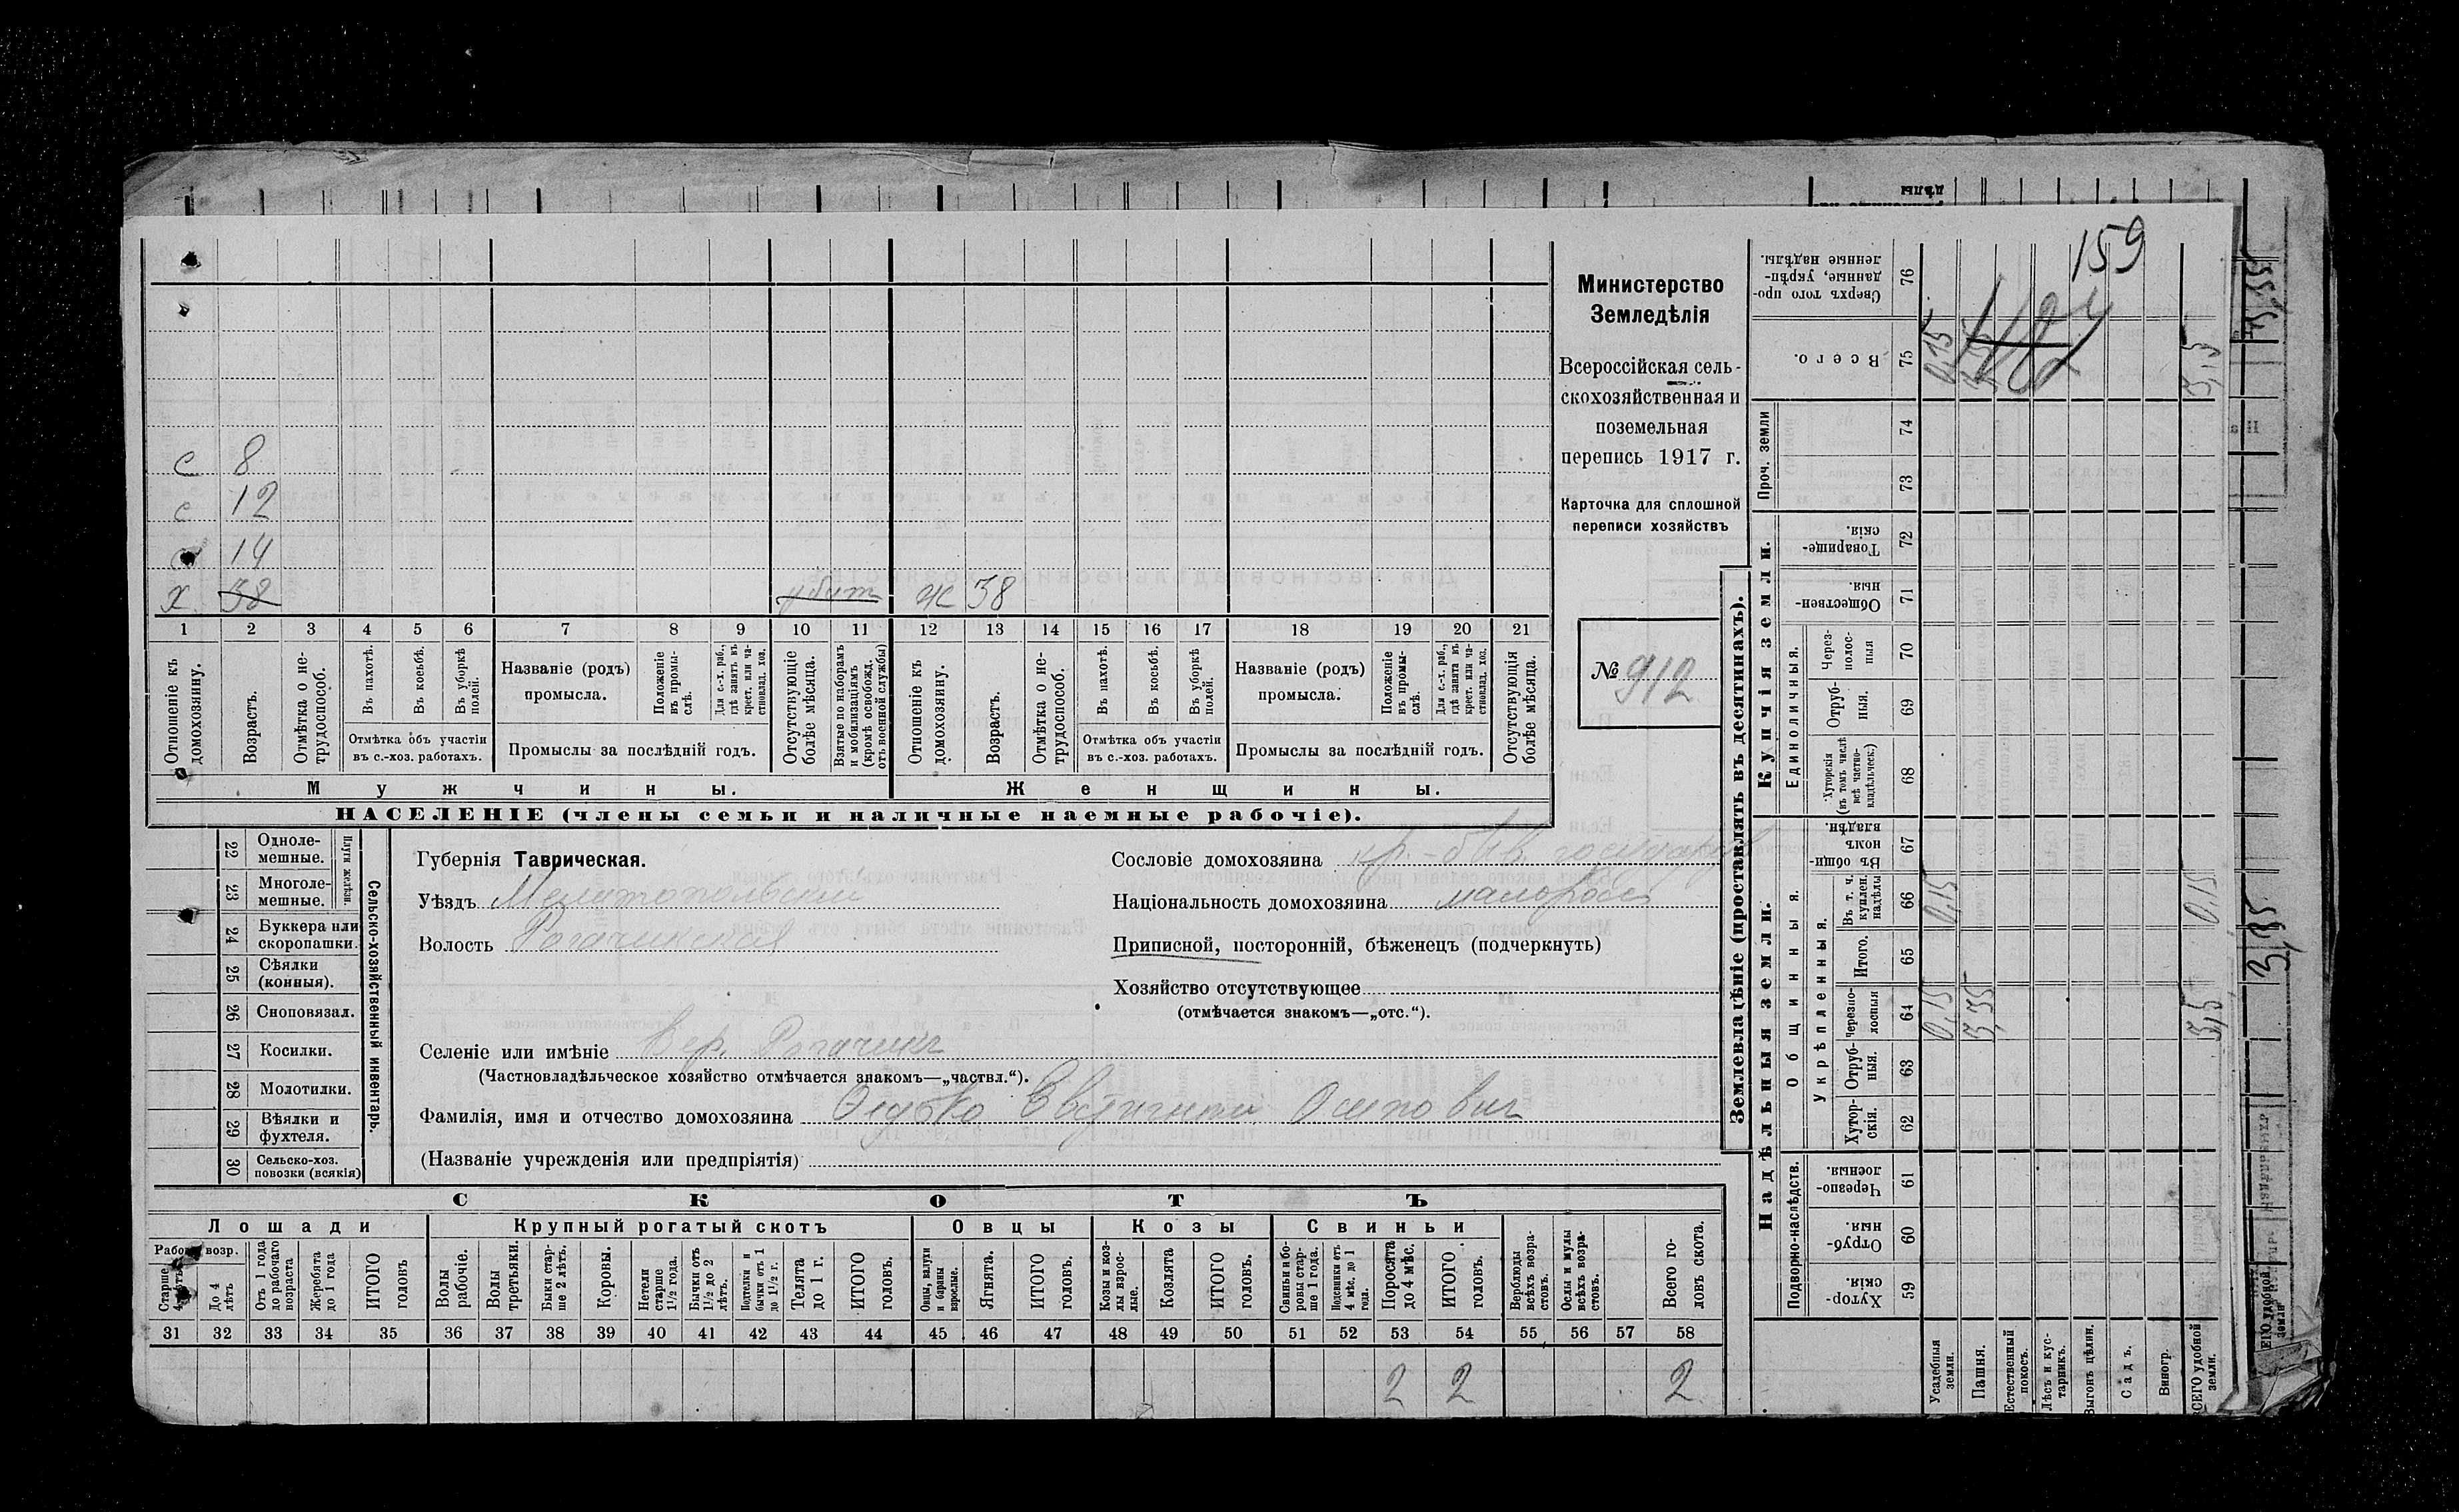 159
Министерство
Земледѣлія
Всероссійская сель-
скохозяйственная и
поземельная
перепись 1917 г.
Карточка для сплошной
переписи хозяйствъ
№ 912
с 8
с 12
с 14
х 38 убит ж 38
1 2 3 4 5 6 7 8 9 10 11 12 13 14 15 16 17 18 19 20 21
Отношеніе къ домохозяину.
Возрастъ.
Отмѣтка о не-трудоспособ.
Въ пахотѣ.
Въ косьбѣ.
Въ уборкѣ полей.
Отмѣтка объ участіи
въ с.-хоз. работахъ.
Названіе (родъ)
промысла.
Положеніе въ промы-слѣ.
Для с.-х. раб., гдѣ занятъ въ крест. или ча-стновлад. хоз.
Промыслы за послѣдній годъ.
Отсутствующіе болѣе мѣсяца.
Взятые по наборамъ и мобилизаціямъ (кромѣ освобожд. отъ военной службы)
Отношеніе къ домохозяину.
Возрастъ.
Отмѣтка о не-трудоспособ.
Въ пахотѣ.
Въ косьбѣ.
Въ уборкѣ полей.
Отмѣтка объ участіи
въ с.-хоз. работахъ.
Названіе (родъ)
промысла.
Положеніе въ промы-слѣ.
Для с.-х. раб., гдѣ занята въ крест. или ча-стновлад. хоз.
Промыслы за послѣдній годъ.
Отсутствующія болѣе мѣсяца.
Мужчины.
Женщины.
НАСЕЛЕНІЕ (члены семьи и наличные наемные рабочіе).
22 Одноле-мешные.
23 Многоле-мешные.
Плуги желѣзн.
24 Буккера или скоропашки.
25 Сѣялки (конныя).
26 Сноповязал.
27 Косилки.
28 Молотилки.
29 Вѣялки и фухтеля.
30 Сельско-хоз. повозки (всякія)
Сельско-хозяйственный инвентарь.
Губернія Таврическая.
Уѣздъ Мелитопольский
Волость Рогачикская
Селеніе или имѣніе Вер. Рогачик
(Частновладѣльческое хозяйство отмѣчается знакомъ—„частвл.“).
Фамилія, имя и отчество домохозяина Осипович
(Названіе учрежденія или предпріятія)
Сословіе домохозяина кр.-быв. государ
Національность домохозяина малоросс
Приписной, посторонній, бѣженецъ (подчеркнуть)
Хозяйство отсутствующее
(отмѣчается знакомъ—„отс.“).
СКОТЪ
Лошади
Крупный рогатый скотъ
Овцы
Козы
Свиньи
Рабоч. возр.
Старше 4 лѣтъ
До 4 лѣтъ
Отъ 1 года до рабочаго возраста
Жеребята до 1 года
ИТОГО головъ
Волы рабочіе.
Волы третьяки.
Быки стар-ше 2 лѣтъ.
Коровы.
Нетели старше 1½ года.
Бычки отъ 1½ до 2 лѣтъ.
Подтелки и бычки отъ 1 до 1½ г.
Телята до 1 г.
ИТОГО головъ.
Овцы, валухи и бараны взрослые.
Ягнята.
ИТОГО головъ.
Козы и коз-лы взрос-лые.
Козлята
ИТОГО головъ.
Свиньи и бо-ровы стар-ше 1 года.
Подсвинки отъ 4 мѣс. до 1 года.
Поросята до 4 мѣс.
ИТОГО головъ.
Верблюды всѣхъ возра-стовъ.
Ослы и мулы всѣхъ возра-стовъ.
Всего го-ловъ скота.
31 32 33 34 35 36 37 38 39 40 41 42 43 44 45 46 47 48 49 50 51 52 53 54 55 56 57 58
2 2 2
Землевладѣніе (проставлять въ десятинахъ).
Надѣльныя земли.
Купчія земли.
Проч. земли
Подворно-наслѣдств.
Общинныя.
Укрѣпленныя.
Единоличныя.
Сверхъ того про-данные, укрѣп-ленные надѣлы. 76
Всего. 75
74
73
Товарище-скія. 72
Обществен-ныя. 71
Через-полос-ныя 70
Отруб-ныя. 69
Хуторскія (въ томъ числѣ всѣ частно-владѣльческ.) 68
Въ общин-номъ владѣн. 67
Въ т. ч. куплен. надѣлы 66
Итого. 65
Черезпо-лосныя 64
Отруб-ныя. 63
Хутор-скія. 62
Черезпо-лосныя. 61
Отруб-ныя. 60
Хутор-скія. 59
Усадебныя земли.
Пашня.
Естественный покосъ.
Лѣсъ и кус-тарникъ.
Выгонъ цѣлин.
Садъ.
Виногр.
ВСЕГО удобной земли.
0,15
0,15
0,15
0,15
3,35
3,5
3,5